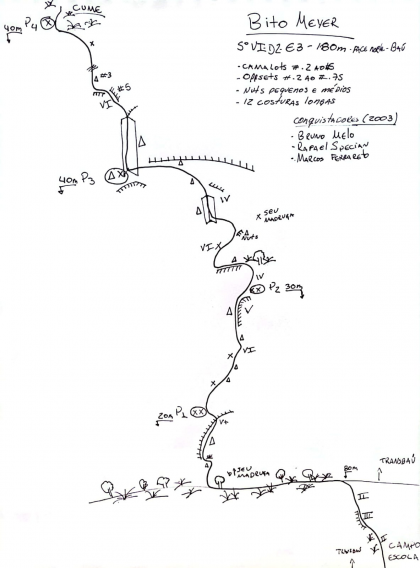 Bito Meyer
5º VI D2 E3 - 180m - Face Norte - Baú
- Camalots #.2 ao #5
- Offsets #.2 ao #.75
- Nuts pequenos e médios
- 12 costuras longas
Conquistadores (2003)
- Bruno Melo
- Rafael Specian
- Marcos Ferrarete
CUME
40m P4
#3
#5
VI
40m P3
IV
x SEU MADRUGA
NUTS
VI
IV
P2 30m
V
VI
20m P1
V+
SEU MADRUGA
80m
TRANSBAÚ
II
III
II
CAMPO
ESCOLA